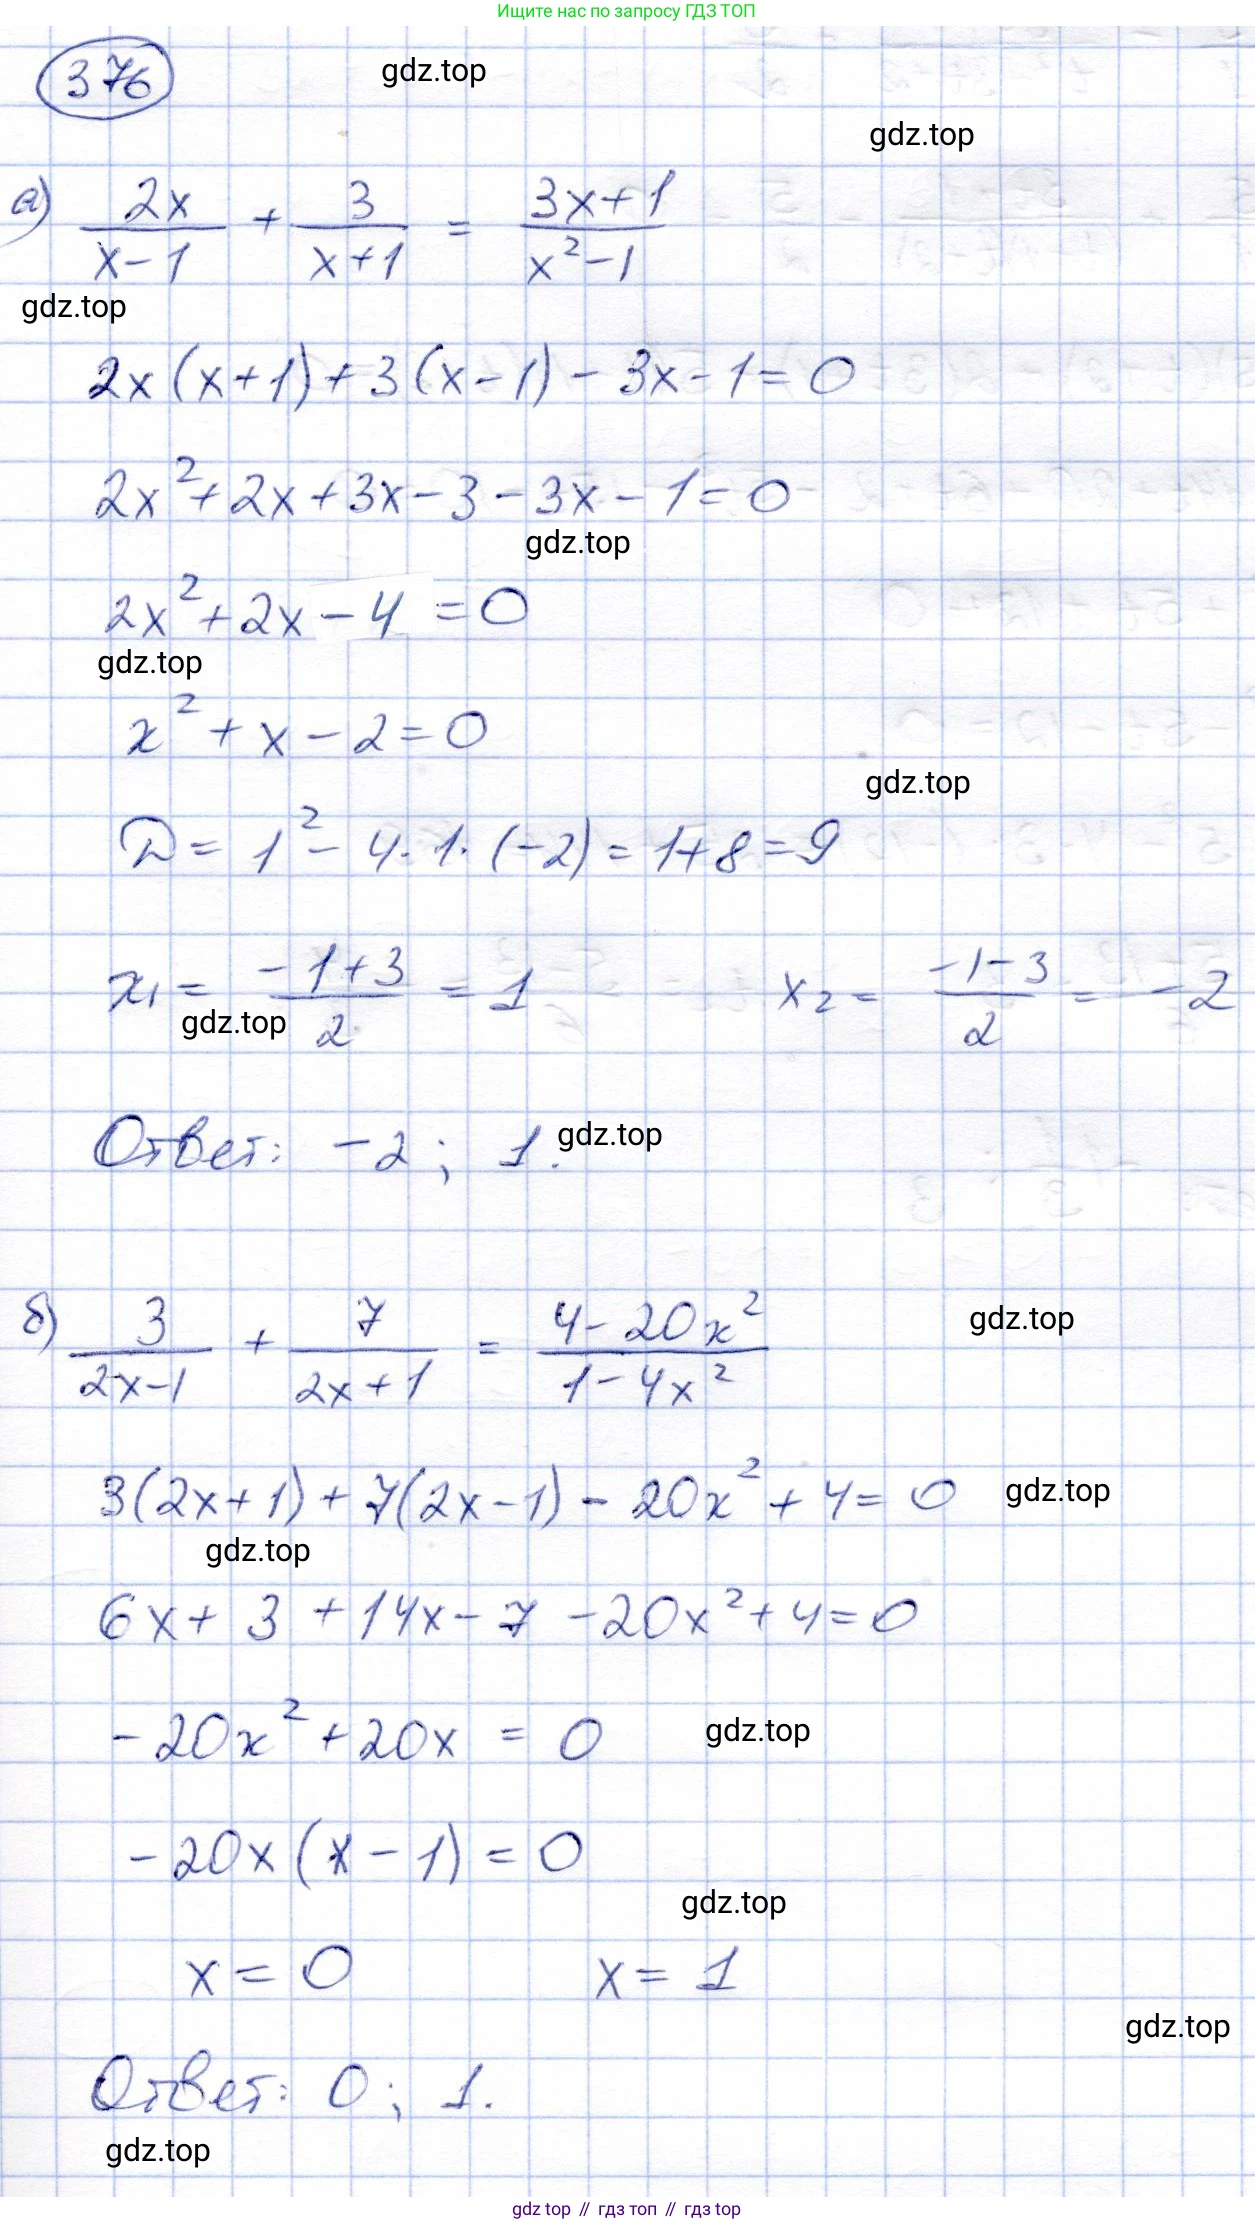 Ищите нас по запросу ГДЗ ТОП
376
gdz.top
gdz.top
а) 2x/(x-1) + 3/(x+1) = (3x+1)/(x²-1)
gdz.top
2x(x+1)+3(x-1)-3x-1=0
2x²+2x+3x-3-3x-1=0
gdz.top
2x²+2x-4=0
gdz.top
x²+x-2=0
gdz.top
D=1²-4·1·(-2)=1+8=9
x₁=(-1+3)/2=1 x₂=(-1-3)/2=-2
gdz.top
Ответ: -2; 1.
gdz.top
б) 3/(2x-1) + 7/(2x+1) = (4-20x²)/(1-4x²)
gdz.top
3(2x+1)+7(2x-1)-20x²+4=0
gdz.top
gdz.top
6x+3+14x-7-20x²+4=0
-20x²+20x=0
gdz.top
-20x(x-1)=0
gdz.top
x=0 x=1
gdz.top
Ответ: 0; 1.
gdz.top
gdz top // гдз топ // гдз top